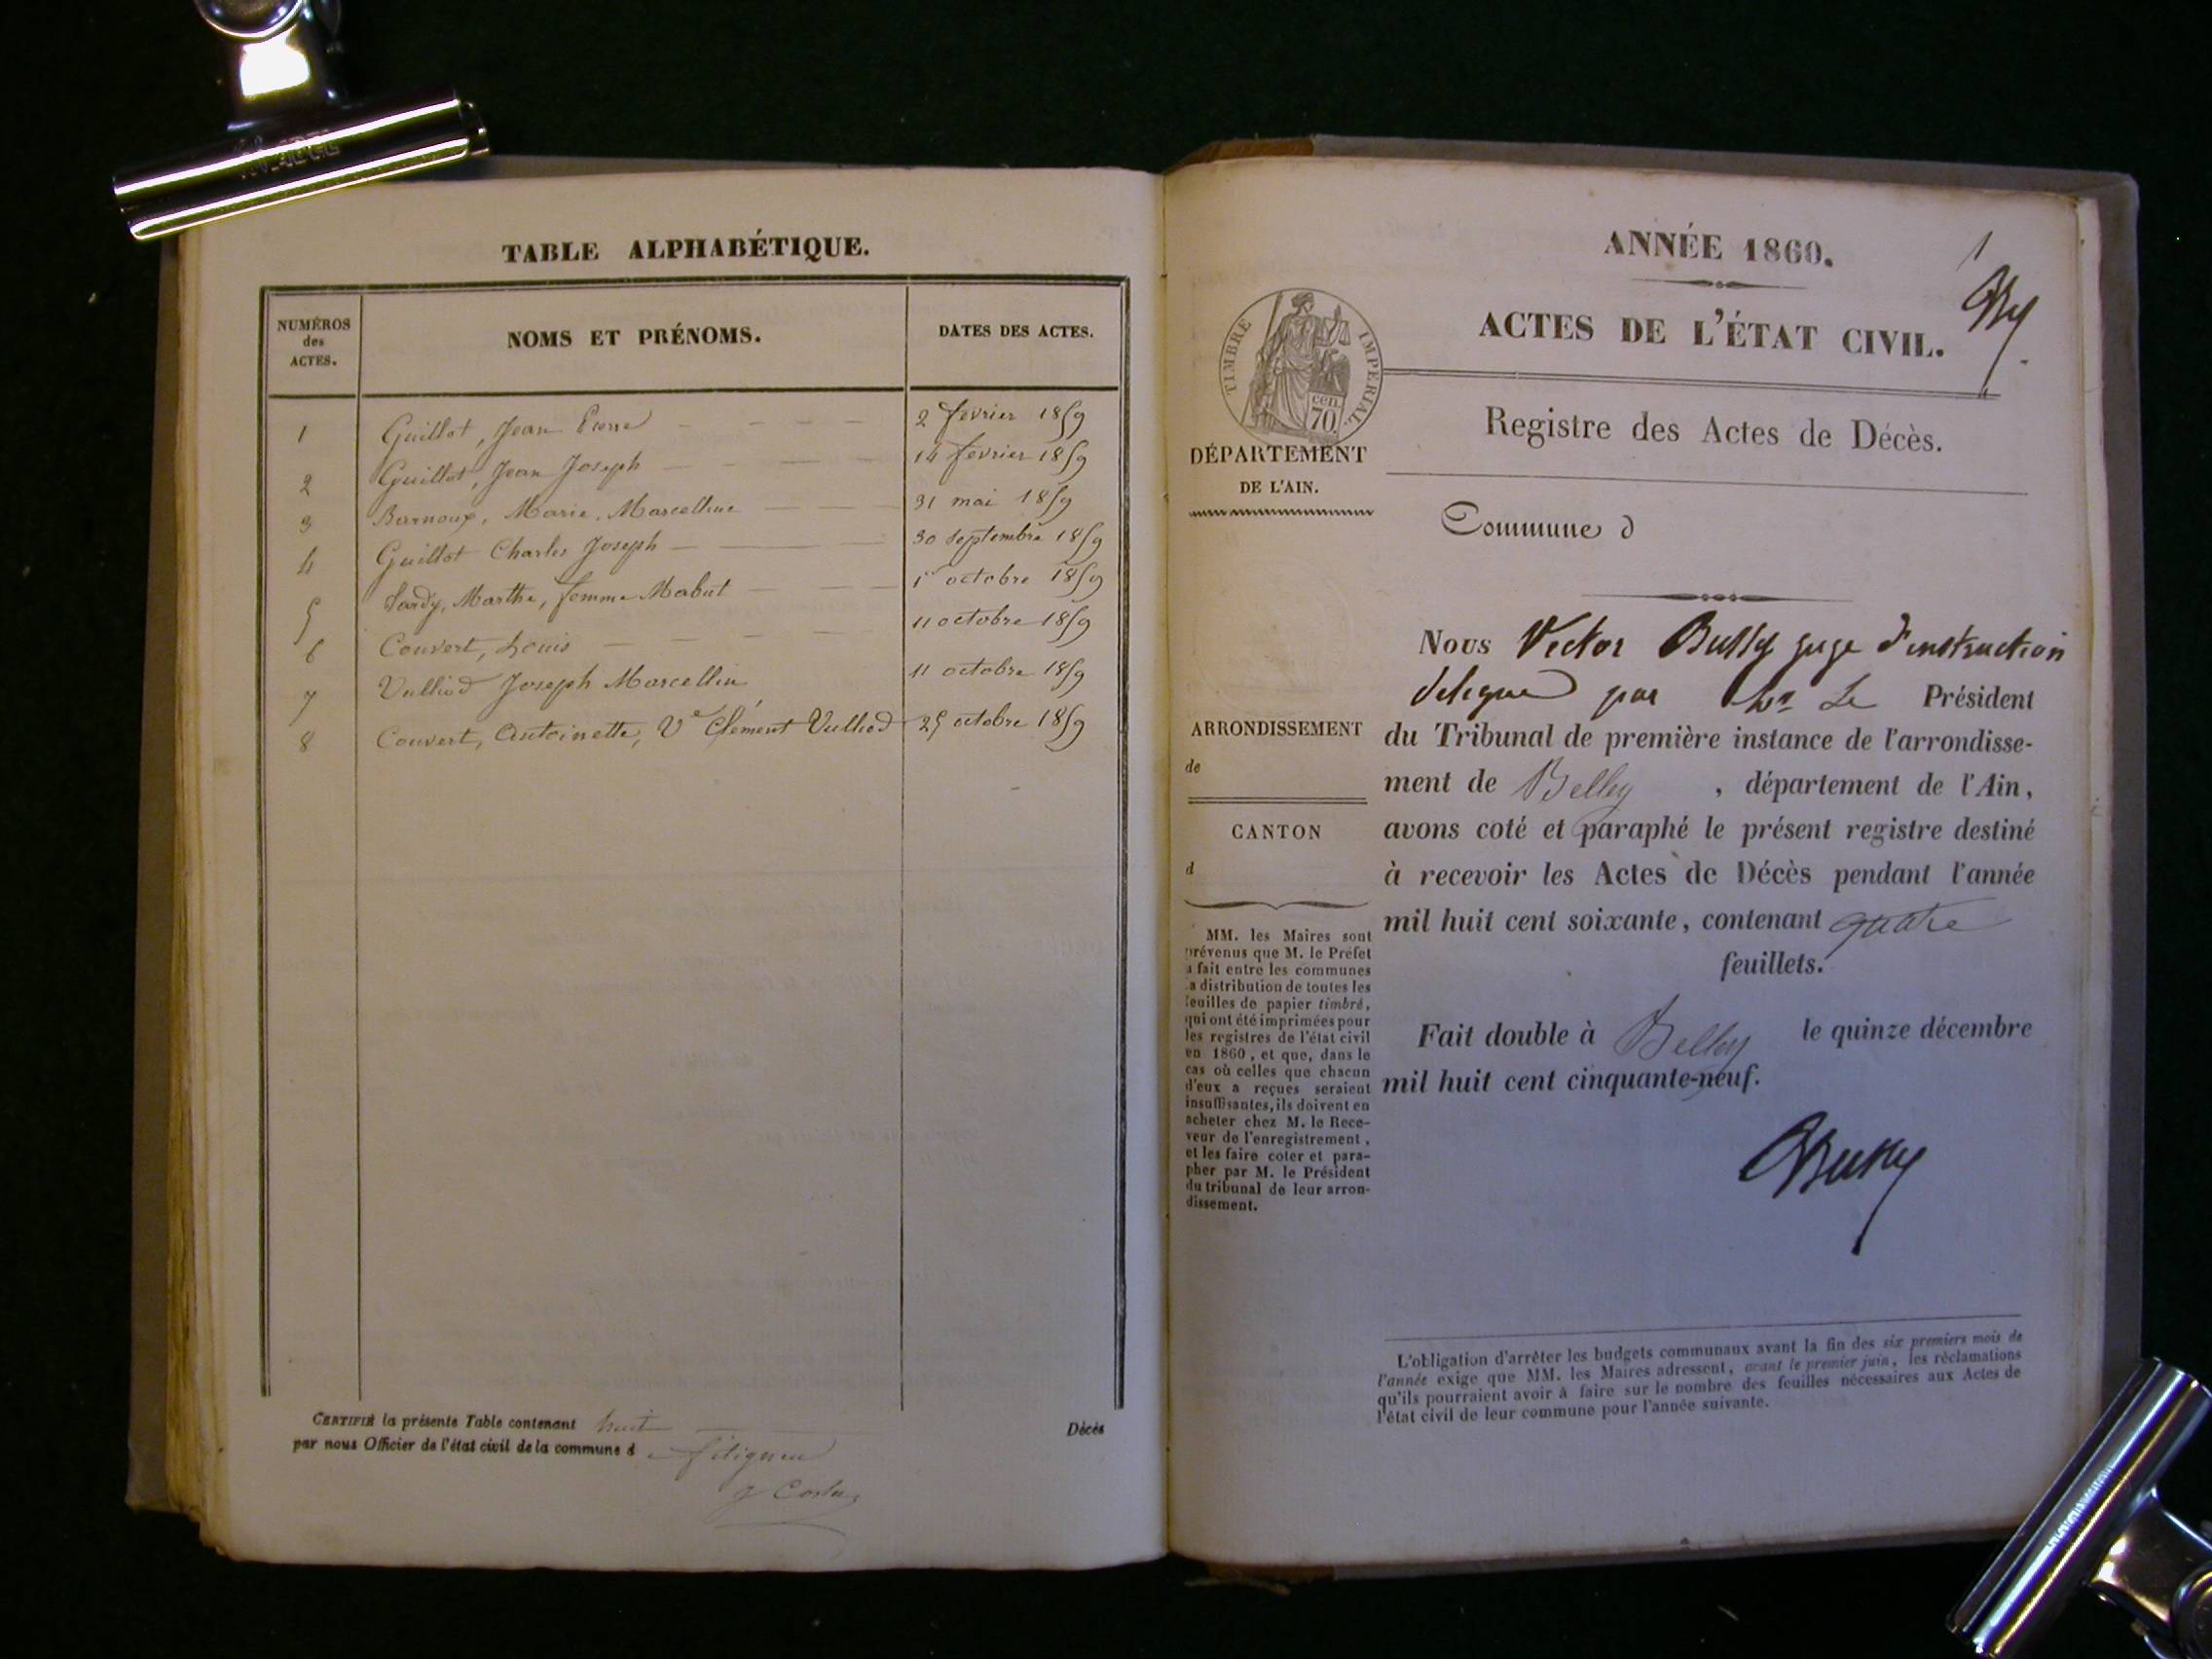 TABLE ALPHABÉTIQUE.
NUMÉROS
des
ACTES.
NOMS ET PRÉNOMS.
DATES DES ACTES.
1 Guillot, Jean Pierre 2 février 1859
2 Guillot, Jean Joseph 14 février 1859
3 Barnoux, Marie, Marcelline 31 mai 1859
4 Guillot Charles Joseph 30 septembre 1859
5 Sardy, Marthe, femme Mabut 1er octobre 1859
6 Couvert, Louis 11 octobre 1859
7 Vulliod Joseph Marcellin 11 octobre 1859
8 Couvert, Antoinette, Ve Clément Vulliod 25 octobre 1859
CERTIFIÉ la présente Table contenant huit Décès
par nous Officier de l'état civil de la commune d
1
ANNÉE 1860.
ACTES DE L'ÉTAT CIVIL.
Registre des Actes de Décès.
TIMBRE IMPERIAL.
cen.
70
DÉPARTEMENT
DE L'AIN.
Commune d
ARRONDISSEMENT
de
CANTON
d
MM. les Maires sont
prévenus que M. le Préfet
a fait entre les communes
la distribution de toutes les
feuilles de papier timbré,
qui ont été imprimées pour
les registres de l'état civil
en 1860, et que, dans le
cas où celles que chacun
d'eux a reçues seraient
insuffisantes, ils doivent en
acheter chez M. le Rece-
veur de l'enregistrement,
et les faire coter et para-
pher par M. le Président
du tribunal de leur arron-
dissement.
Nous Victor Bussy juge d'instruction
délégué par Mr Le Président
du Tribunal de première instance de l'arrondisse-
ment de Belley, département de l'Ain,
avons coté et paraphé le présent registre destiné
à recevoir les Actes de Décès pendant l'année
mil huit cent soixante, contenant quatre
feuillets.
Fait double à Belley le quinze décembre
mil huit cent cinquante-neuf.
Bussy
L'obligation d'arrêter les budgets communaux avant la fin des six premiers mois de
l'année exige que MM. les Maires adressent, avant le premier juin, les réclamations
qu'ils pourraient avoir à faire sur le nombre des feuilles nécessaires aux Actes de
l'état civil de leur commune pour l'année suivante.